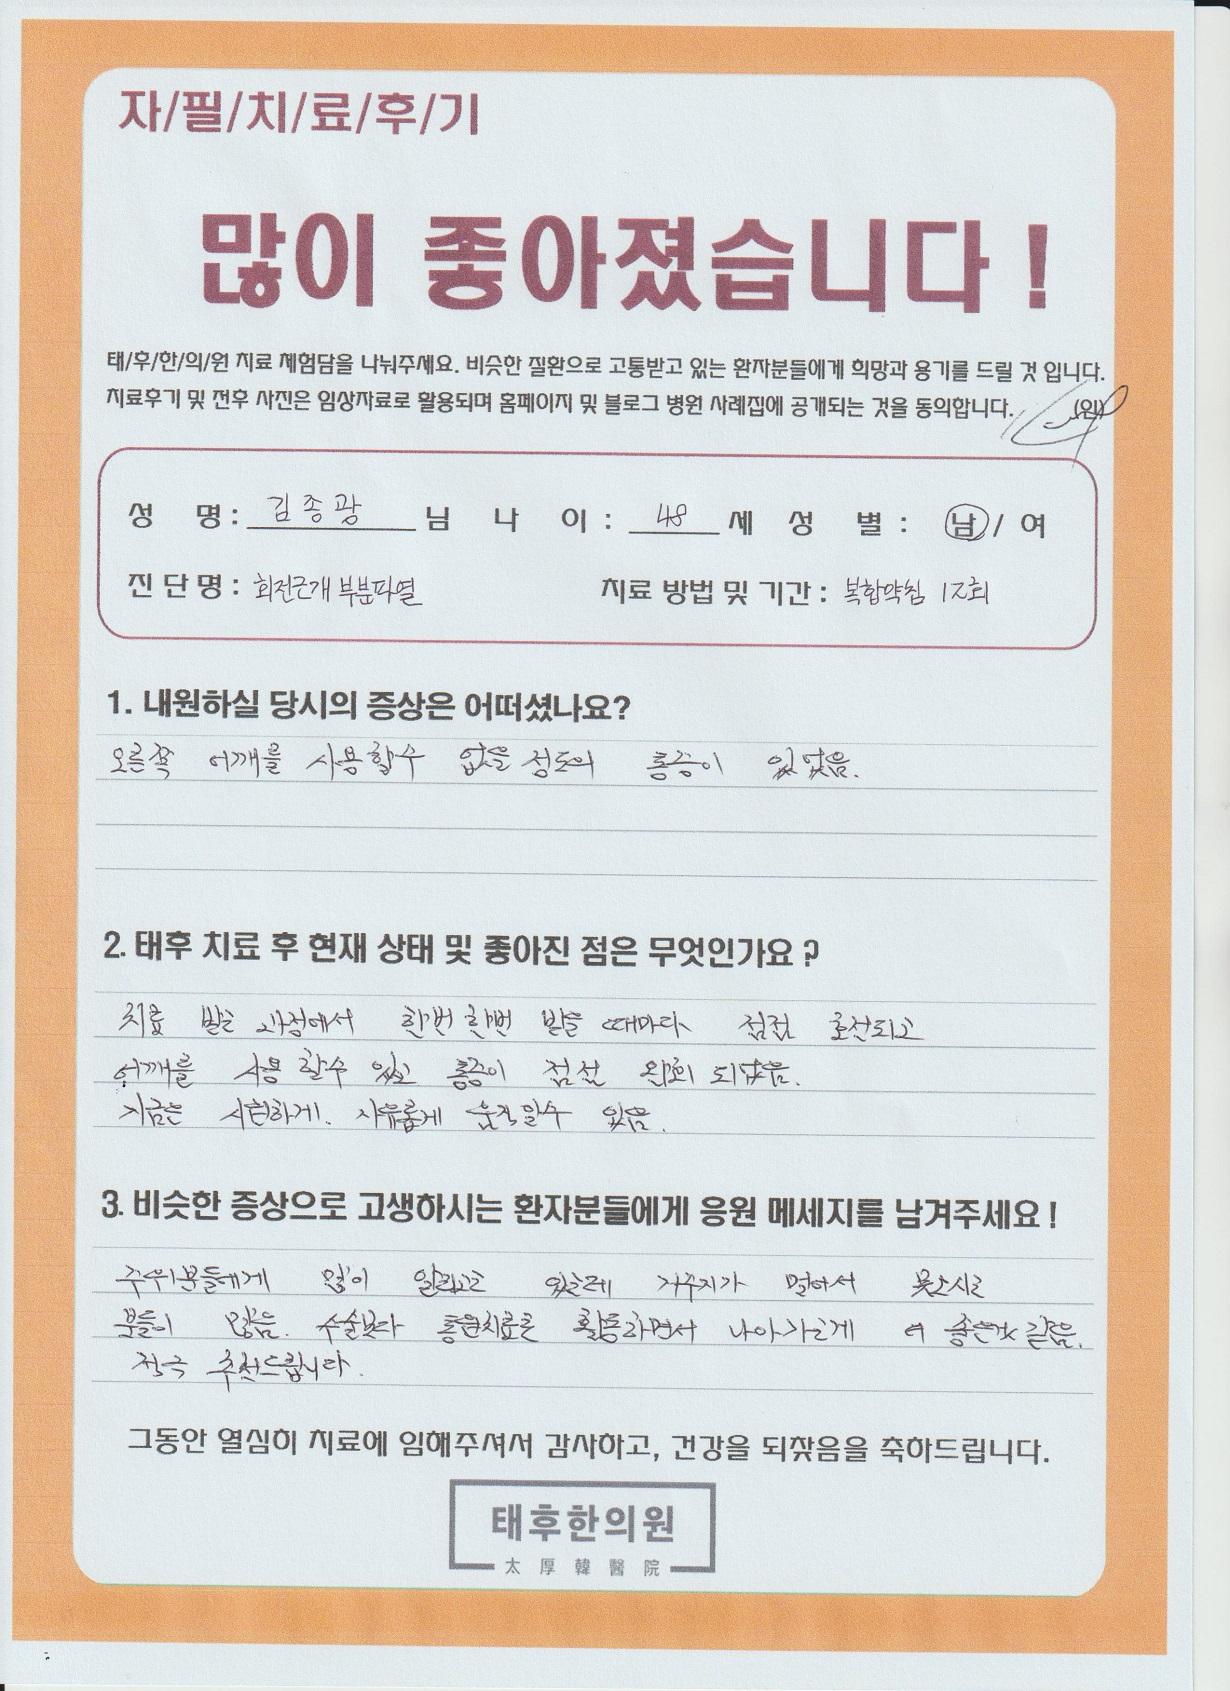 자/필/치/료/후/기
많이 좋아졌습니다!
태/후/한/의/원 치료 체험담을 나눠주세요. 비슷한 질환으로 고통받고 있는 환자분들에게 희망과 용기를 드릴 것 입니다.
치료후기 및 전후 사진은 임상자료로 활용되며 홈페이지 및 블로그 병원 사례집에 공개되는 것을 동의합니다. (인)
성 명 : 김종광 님 나 이 : 48 세 성 별 : 남 / 여
진 단 명 : 회전근개 부분파열 치료 방법 및 기간 : 복합약침 12회
1. 내원하실 당시의 증상은 어떠셨나요?
오른쪽 어깨를 사용할수 없을 정도의 통증이 있었음.
2. 태후 치료 후 현재 상태 및 좋아진 점은 무엇인가요?
치료 받는 과정에서 한번 한번 받을 때마다 점점 호전되고
어깨를 사용 할수 있고 통증이 점점 완화 되었음.
지금은 시원하게. 자유롭게 움직일수 있음.
3. 비슷한 증상으로 고생하시는 환자분들에게 응원 메세지를 남겨주세요!
주위분들에게 많이 알리고는 있는데 거주지가 멀어서 못오시는
분들이 많음. 수술보다 통원치료로 활동하면서 나아가는게 더 좋은것 같음.
적극 추천드립니다.
그동안 열심히 치료에 임해주셔서 감사하고, 건강을 되찾음을 축하드립니다.
태후한의원
太厚韓醫院